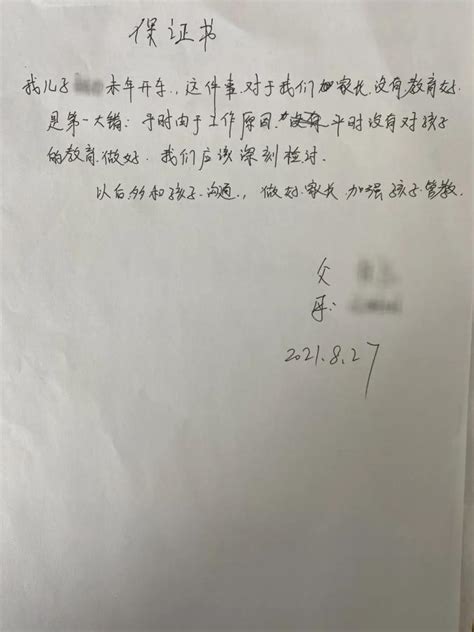 保证书
我儿子 未年开车，这件事对于我们加家长没有教育好
是第一大错：平时由于工作原因 平时没有对孩子
的教育做好．我们应该深刻检讨．
以后多和孩子沟通，做好家长加强孩子管教
父
母：
2021.8.27